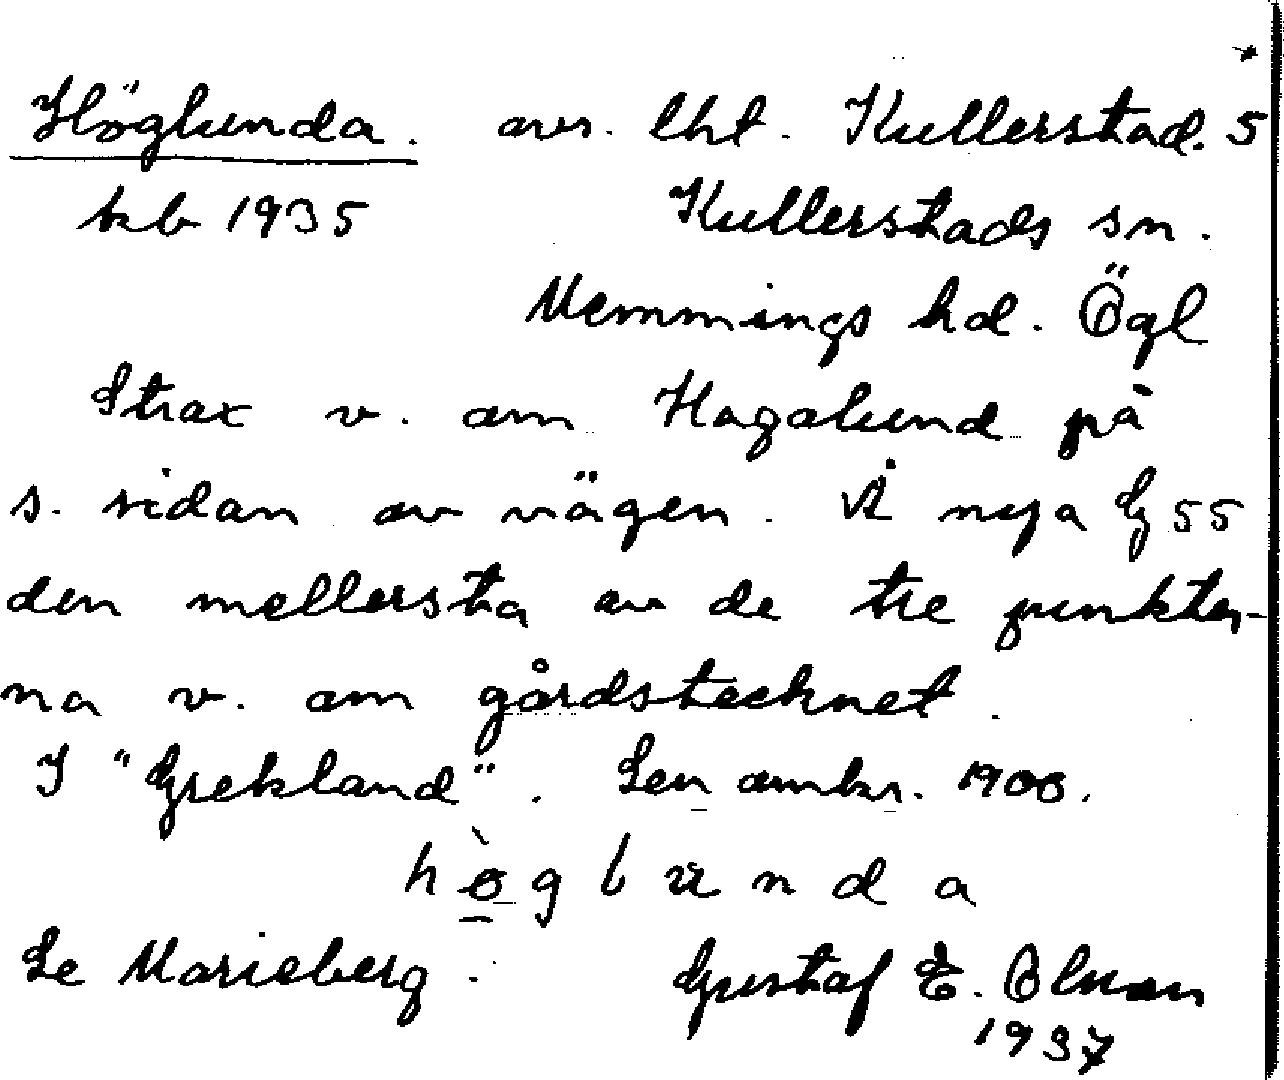 Höglunda. avs. lht. Kullerstad. 5
kb 1935 Kullerstads sn.
Memmings hd. Ögl
Strax v. om Hagalund på
s. sidan av vägen. Å nya G 55
den mellersta av de tre punkter-
na v. om gårdstecknet.
I "Grekland". Sen omkr. 1900.
h ò g l u n d a
Se Marieberg. Gustaf E. Olsson
1937